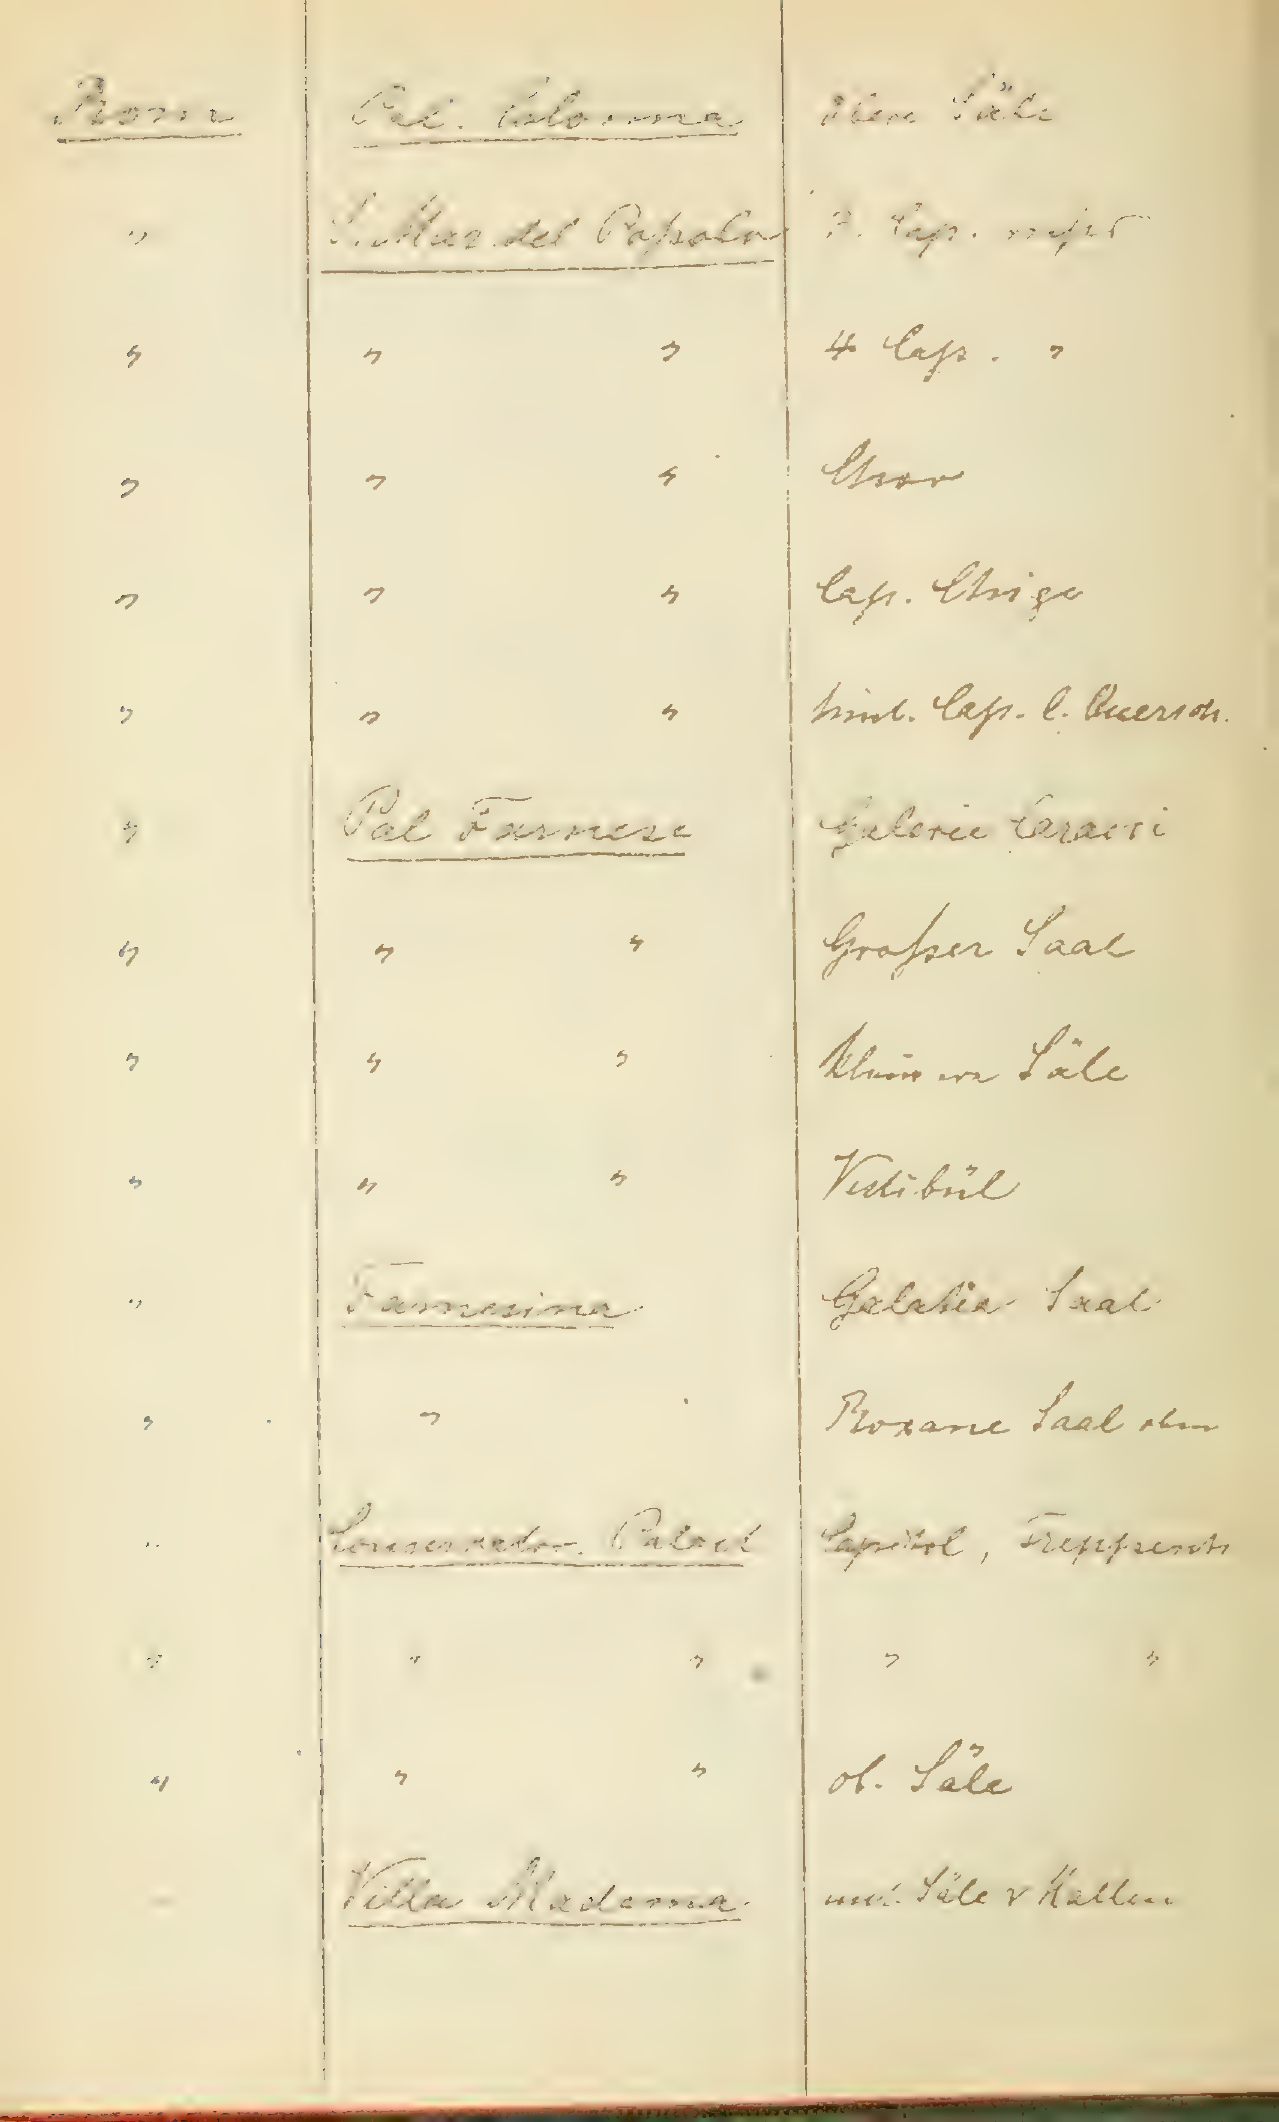 Roma Pal. Colonna obere Säle
" S. Mar. del Popolo 3. Cap. rechts
" " " 4 Cap. "
" " " Chor
" " " Cap. Chigi
" " " hint. Cap. l. Quersch.
" Pal Farnese Galerie Caracci
" " " Großer Saal
" " " Kleinere Säle
" " " Vestibül
" Farnesina Galatea Saal
" " Roxane Saal oben
" Conservator. Palast Capitol, Treppenh
" " " " "
" " " ob. Säle
" Villa Madama unt. Säle v Hallen